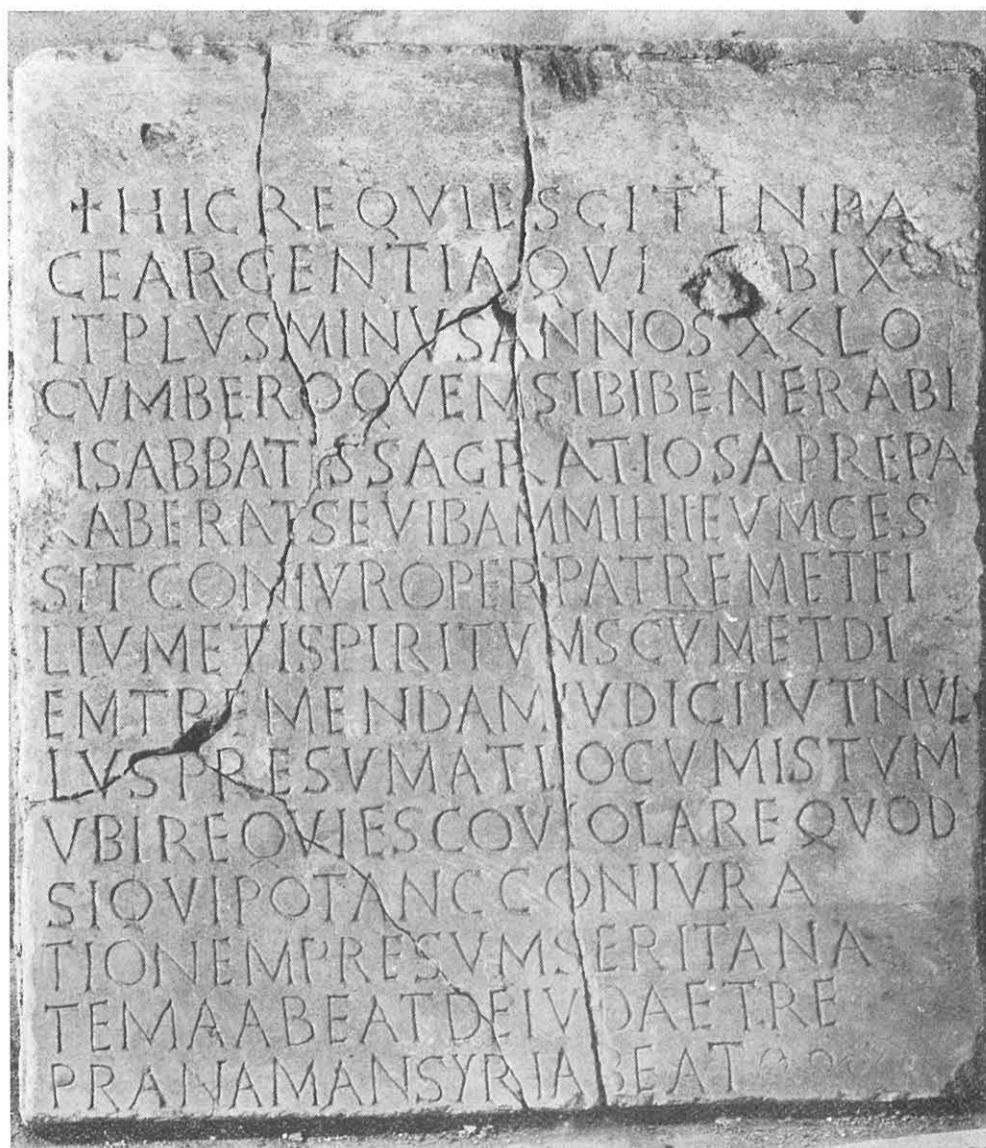 +HICREQVIESCITINPA
CEARGENTIAQVI BIX
ITPLVSMINVSANNOSX<LO
CVMBEROQVEMSIBIBENERABI
ISABBATISSAGRATIOSAPREPA
RABERATSEVIBAMMIHIEVMCES
SITCONIVROPERPATREMETFI
LIVMETISPIRITVMSCVMETDI
EMTREMENDAMIVDICIIVTNVL
LVSPRESVMATLOCVMISTVM
VBIREQVIESCOVIOLAREQVOD
SIQVIPOTANCCONIVRA
TIONEMPRESVMSERITANA
TEMAABEATDEIVDAETRE
PRANAMANSYRIABEAT